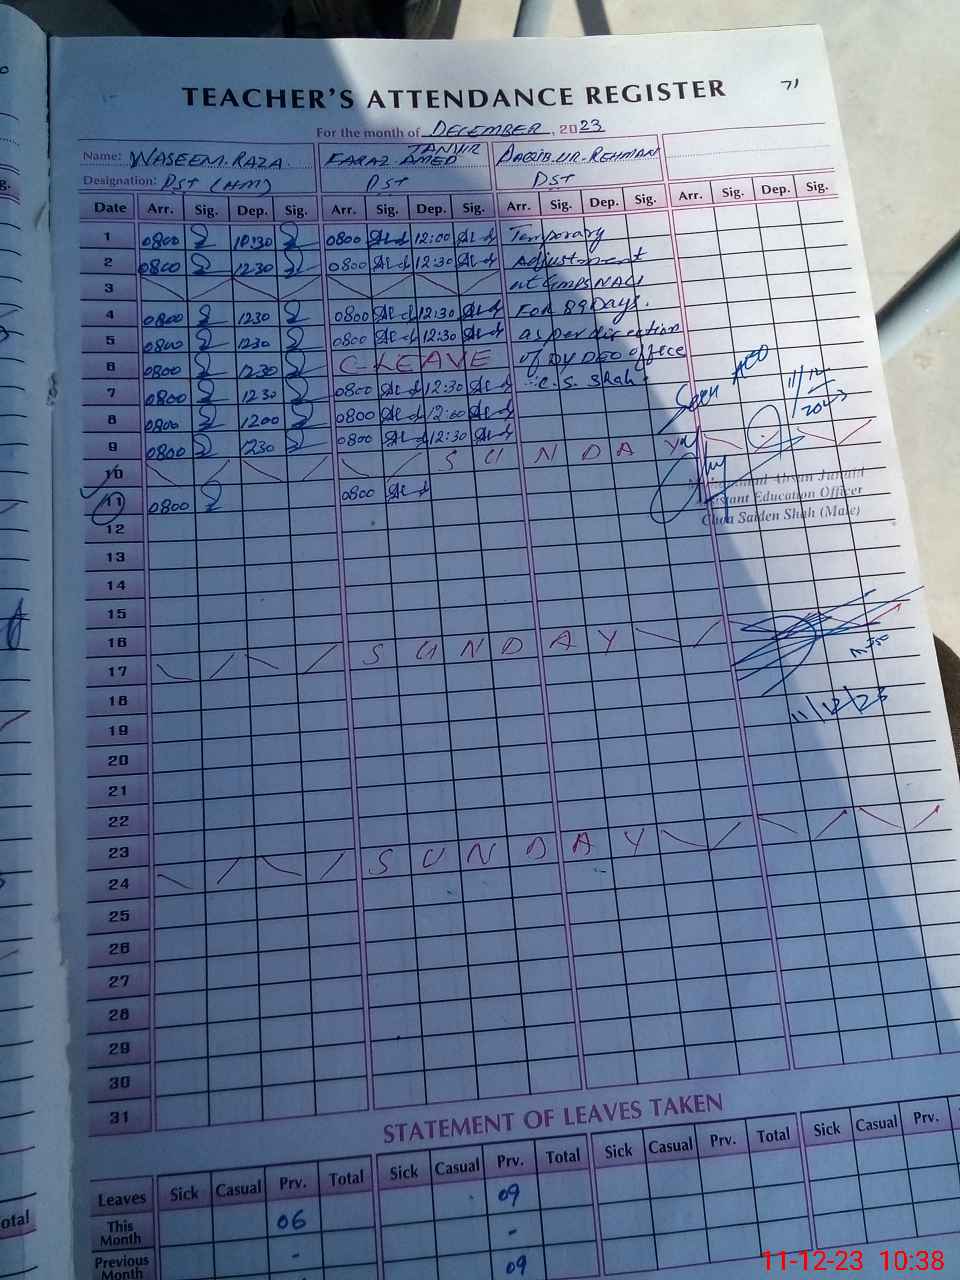 71
TEACHER'S ATTENDANCE REGISTER
For the month of DECEMBER, 2023
Name: WASEEM.RAZA. FARAZ TANVIR AMED UR-REHMAN
Designation: PST (HM) PST PST
Date Arr. Sig. Dep. Sig. Arr. Sig. Dep. Sig. Arr. Sig. Dep. Sig. Arr. Sig. Dep. Sig.
1 0800 0800 12:00 Temporary
2 0800 1230 0800 12:30 Adjustment
3 at
4 0800 1230 0800 12:30 FOR 89 Days.
5 0800 1230 0800 12:30 as per direction
6 0800 1230 C-LEAVE of DY DEO office
7 0800 1230 0800 12:30 C.S. Shah.
8 0800 1200 0800 12:00
9 0800 1230 0800 12:30
10 SUNDAY
11 0800 0800
Seen AEO
11/12/2023
Ahsan Junaid
Assistant Education Officer
Choa Saiden Shah (Male)
12
13
14
15
16
17 SUNDAY
18
11/12/23
19
20
21
22
23
24 SUNDAY
25
26
27
28
29
30
31
STATEMENT OF LEAVES TAKEN
Leaves Sick Casual Prv. Total Sick Casual Prv. Total Sick Casual Prv. Total Sick Casual Prv.
This Month 06 - 09 -
Previous Month 09
otal
11-12-23 10:38